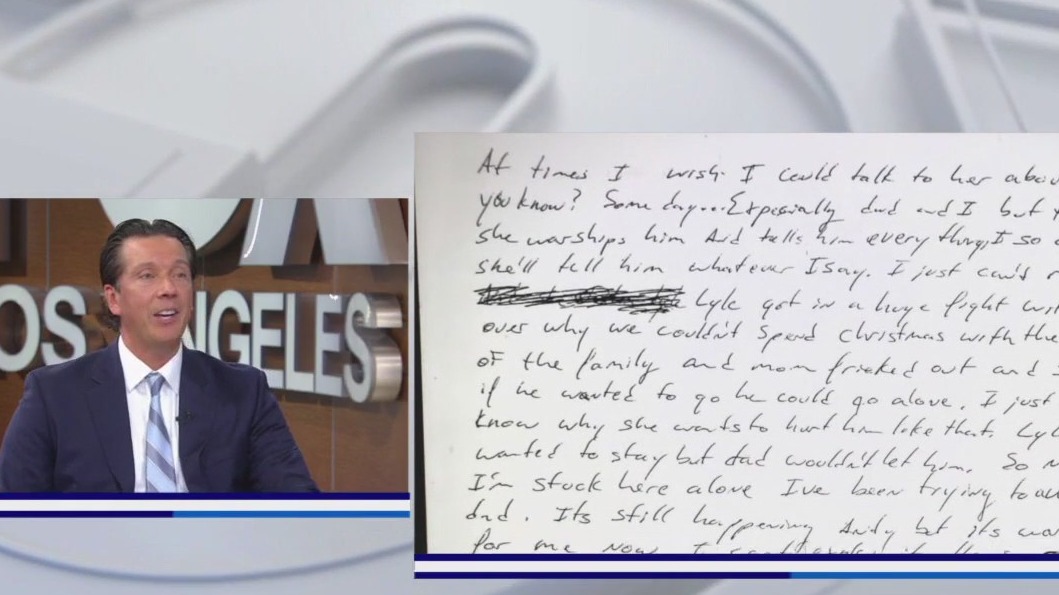 OX
LOS ANGELES
At times I wish I could talk to her abou
you know? Some day... Expecially dad and I but
she warships him And tells him every thing I so
she'll tell him whatever I say. I just can't
Lyle got in a huge fight wi
over why we couldn't spend christmas with the
of the family and mom frieked out and
if he wanted to go he could go alone. I just
know why she wants to hurt him like that. Lyl
wanted to stay but dad wouldn't let him. So
I'm stuck here alone I've been trying to av
dad. Its still happening Andy but its wo
for me now. I can't